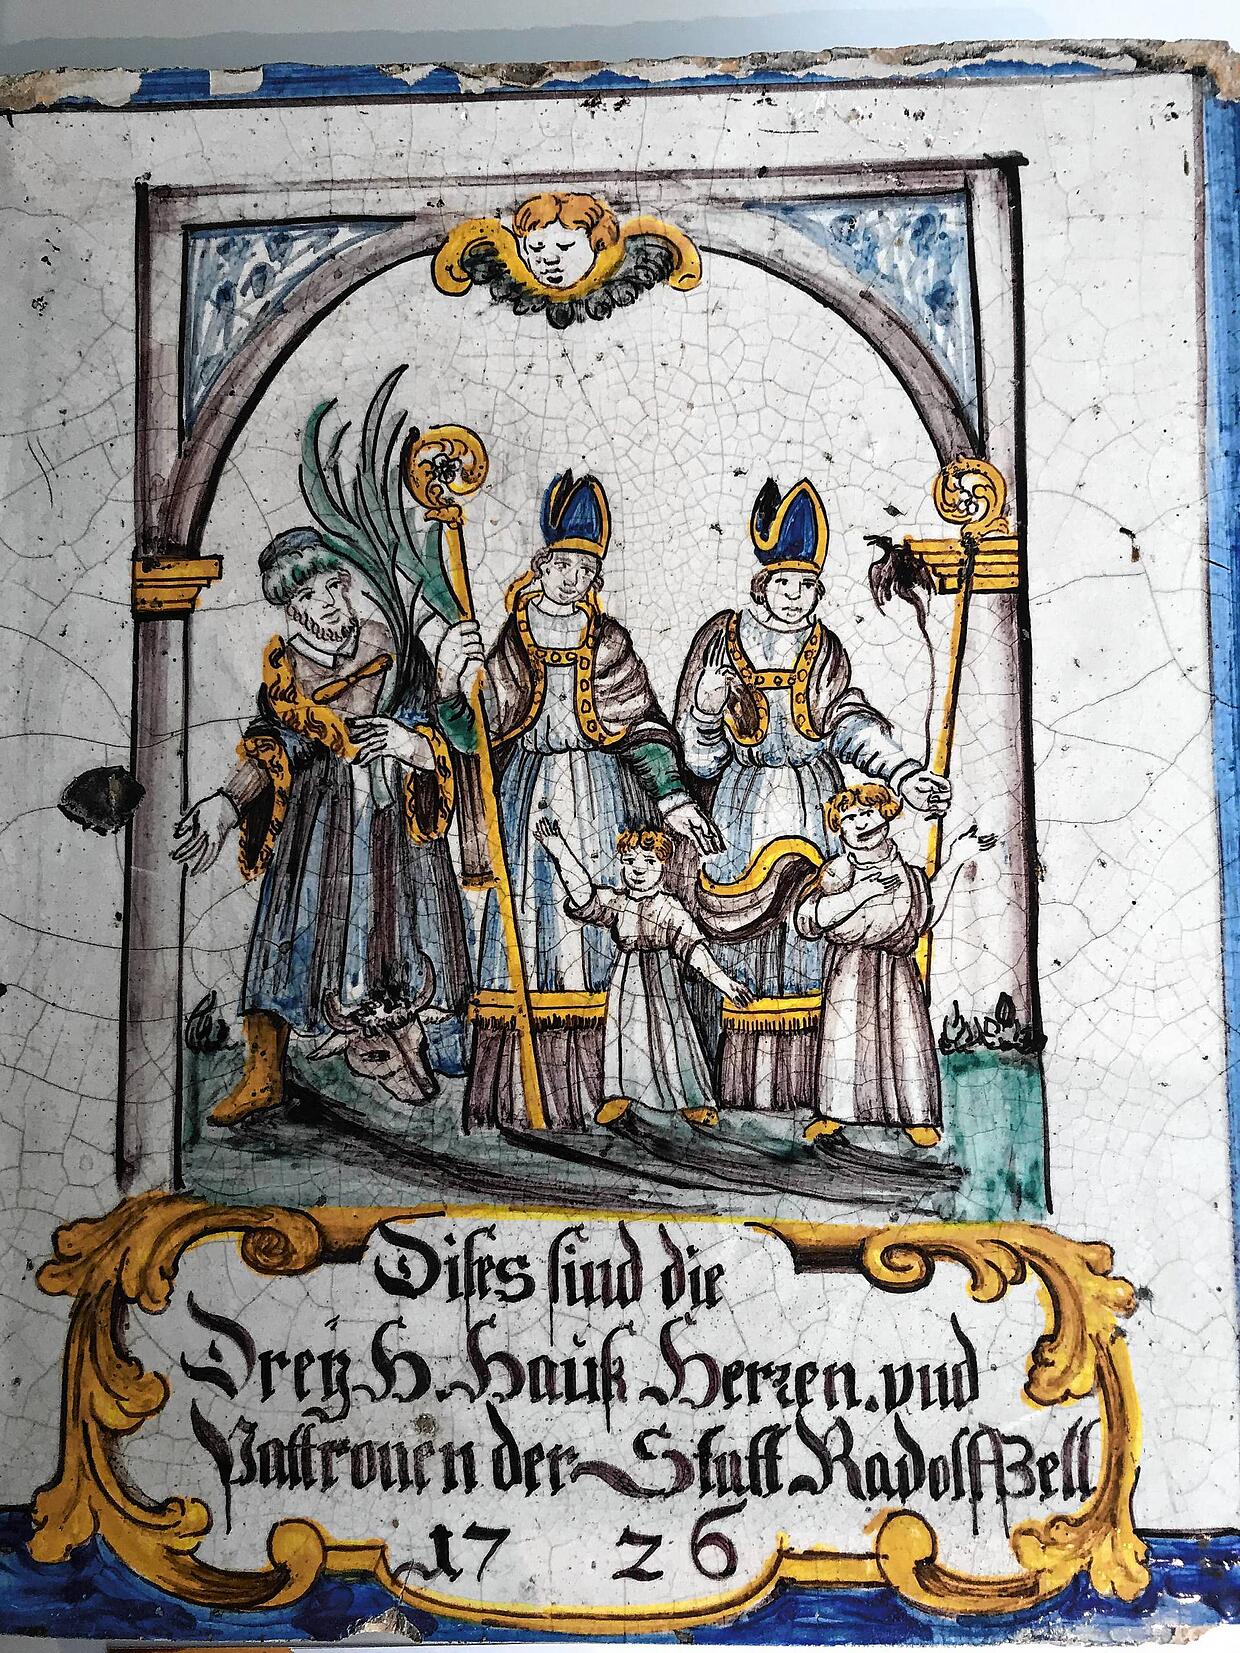 Dises sind die
Dreÿ H. Hauß Herren. vnd
Pattronen der Statt Radolffzell
17 26